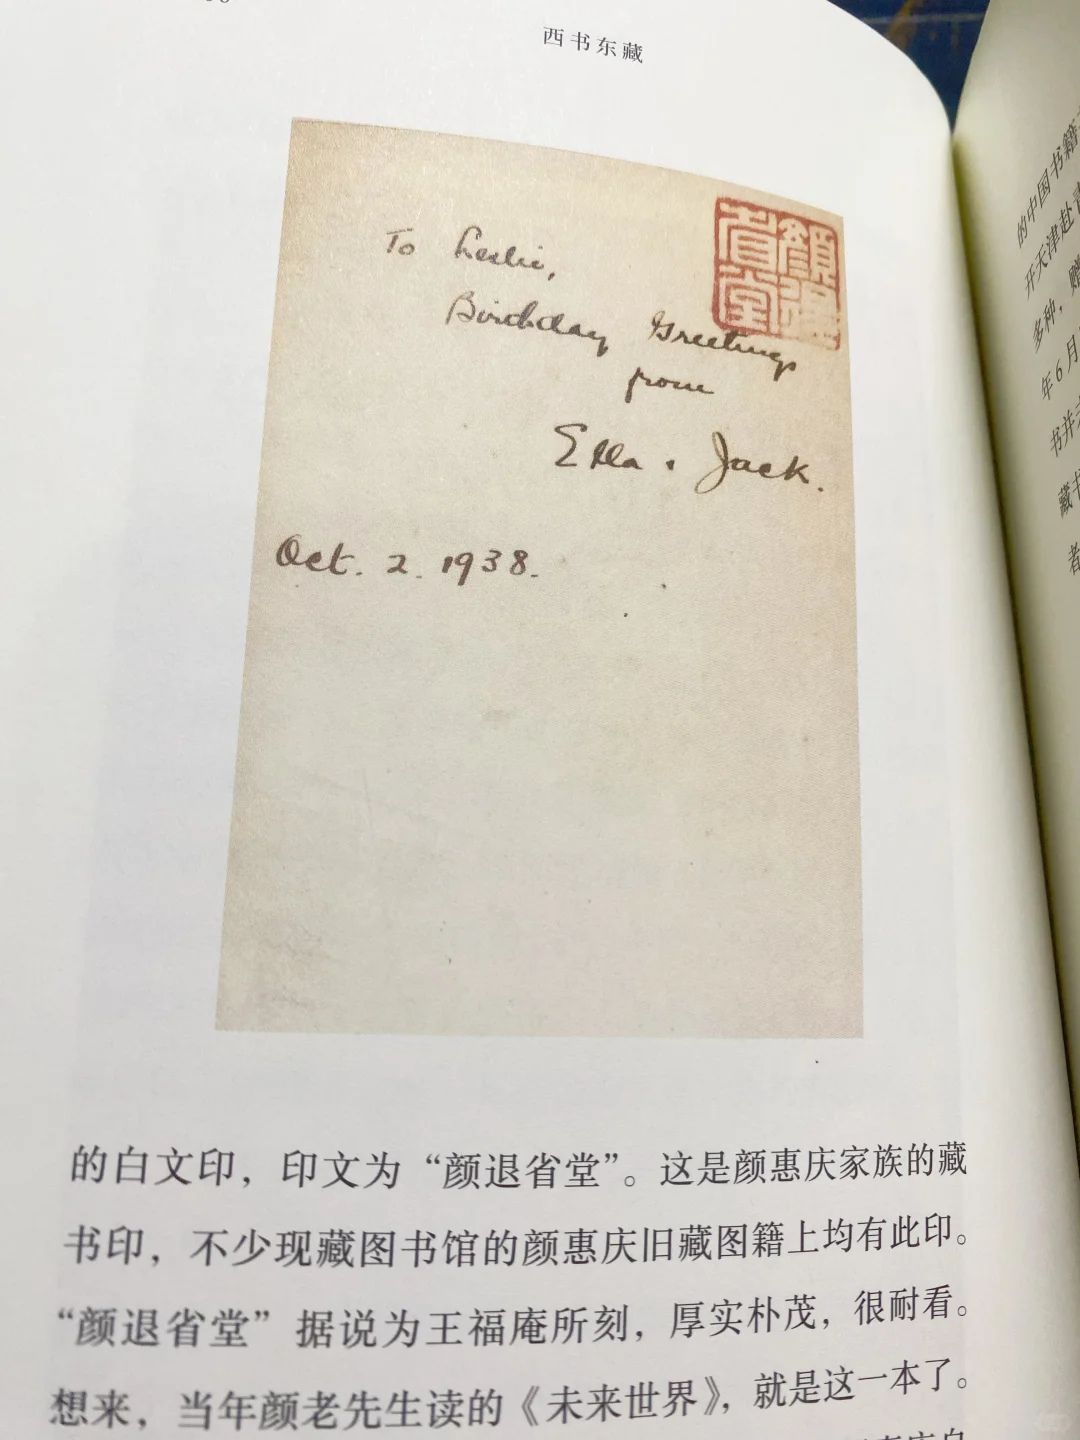 西书东藏
To Leslie,
Birthday Greetings
from
Ella & Jack.
Oct. 2. 1938.
顏退省堂
的白文印，印文为“颜退省堂”。这是颜惠庆家族的藏
书印，不少现藏图书馆的颜惠庆旧藏图籍上均有此印。
“颜退省堂”据说为王福庵所刻，厚实朴茂，很耐看。
想来，当年颜老先生读的《未来世界》，就是这一本了。
的中国书籍
开天津赴
多种，
年6月
书并
藏书
者